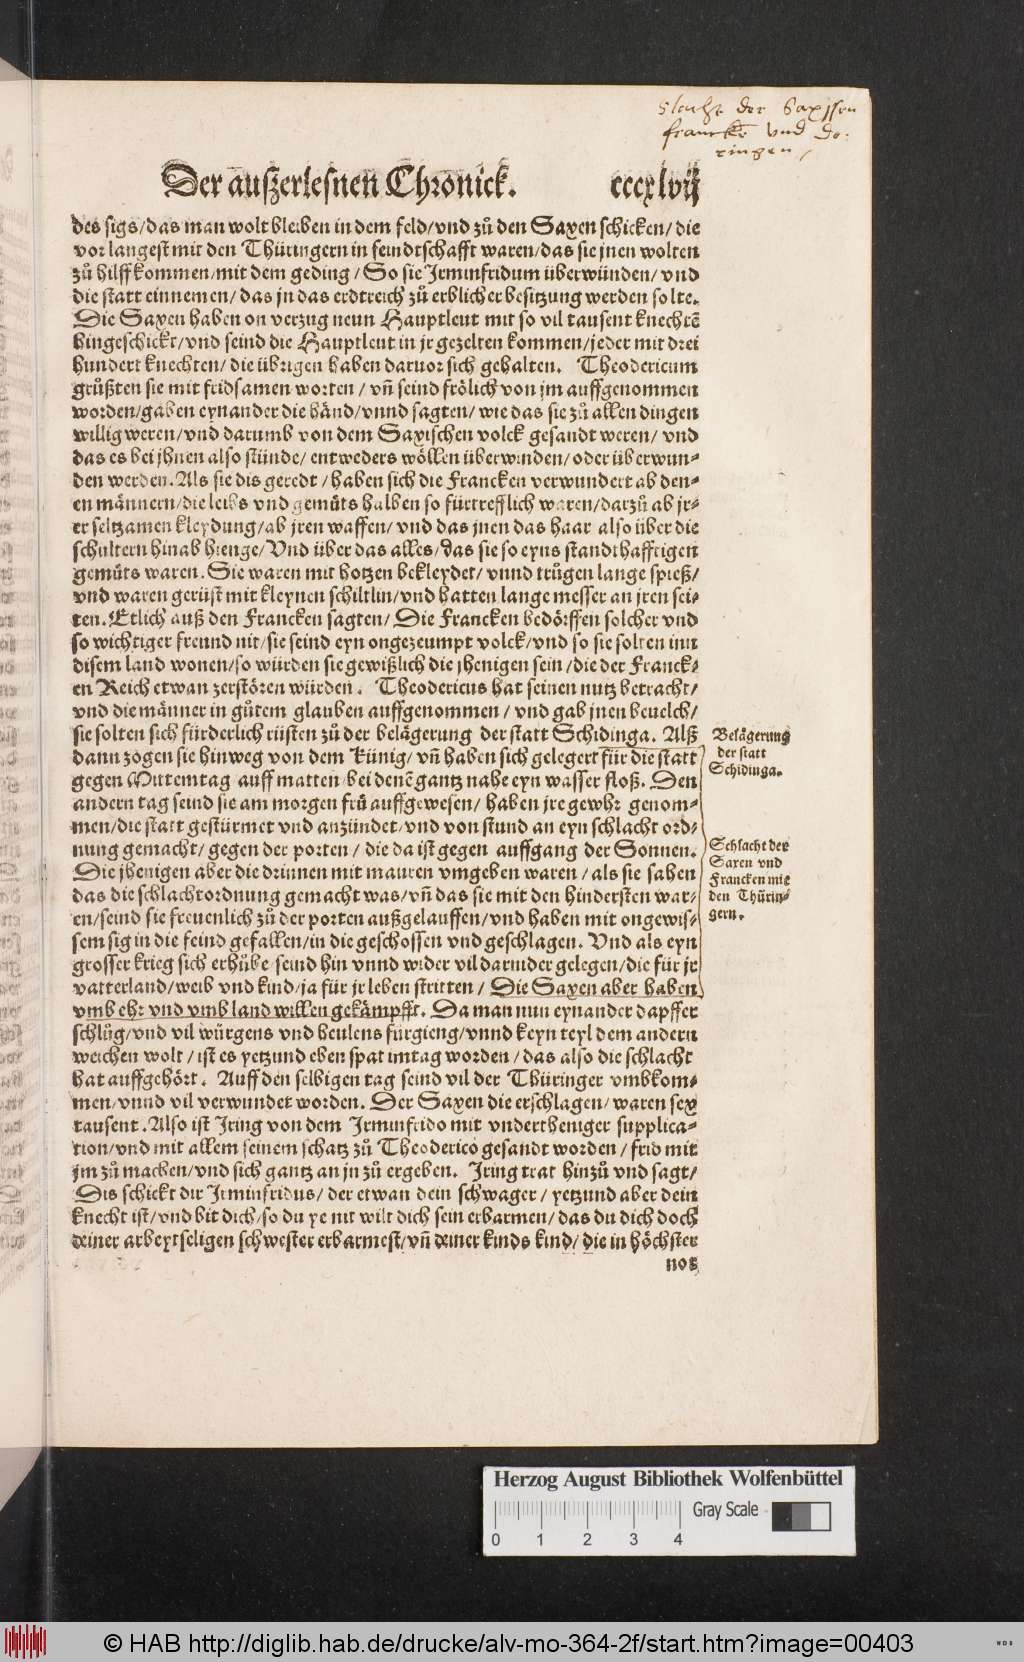 slacht der Saxssen
francken vnd do:
ringen
Der außerlesnen Chronick. cccxlvij
des sigs/das man wolt bleiben in dem feld/vnd zů den Saxen schicken/die
vor langest mit den Thüringern in feindtschafft waren/das sie jnen wolten
zů hilff kommen/mit dem geding/So sie Irminfridum überwünden/vnd
die statt einnemen/das jn das erdtreich zů erblicher besitzung werden solte.
Die Saxen haben on verzug neun Hauptleut mit so vil tausent knechtē
hingeschickt/vnd seind die Hauptleut in jr gezelten kommen/jeder mit drei
hundert knechten/die übrigen haben daruor sich gehalten. Theodericum
grůßten sie mit fridsamen worten/vñ seind frölich von jm auffgenommen
worden/gaben eynander die händ/vnnd sagten/wie das sie zů allen dingen
willig weren/vnd darumb von dem Saxischen volck gesandt weren/vnd
das es bei jhnen also stünde/entweders wöllen überwinden/oder überwun-
den werden. Als sie dis geredt/haben sich die Francken verwundert ab den-
en männern/die leibs vnd gemůts halben so fürtrefflich waren/darzů ab jr-
er seltzamen kleydung/ab jren waffen/vnd das jnen das haar also über die
schultern hinab hienge/Vnd über das alles/das sie so eyns standthafftigen
gemůts waren. Sie waren mit hotzen bekleydet/vnnd trůgen lange spieß/
vnd waren gerüst mit kleynen schiltlin/vnd hatten lange messer an jren sei-
ten. Etlich auß den Francken sagten/Die Francken bedörffen solcher vnd
so wichtiger freund nit/sie seind eyn ongezeumpt volck/vnd so sie solten inn
disem land wonen/so würden sie gewißlich die jhenigen sein/die der Franck-
en Reich etwan zerstören würden. Theodericus hat seinen nutz betracht/
vnd die männer in gůtem glauben auffgenommen/vnd gab jnen beuelch/
sie solten sich fürderlich rüsten zů der belägerung der statt Schidinga. Alß
dann zogen sie hinweg von dem Künig/vñ haben sich gelegert für die statt
gegen Mittemtag auff matten/bei denē gantz nahe eyn wasser floß. Den
andern tag seind sie am morgen frů auffgewesen/haben jre gewhr genom-
men/die statt gestürmet vnd anzündet/vnd von stund an eyn schlacht ord-
nung gemacht/gegen der porten/die da ist gegen auffgang der Sonnen.
Die jhenigen aber die drinnen mit mauren vmgeben waren/als sie sahen
das die schlachtordnung gemacht was/vñ das sie mit den hindersten war-
en/seind sie freuenlich zů der porten außgelauffen/vnd haben mit ongewis-
sem sig in die feind gefallen/in die geschossen vnd geschlagen. Vnd als eyn
grosser krieg sich erhůbe seind hin vnnd wider vil darnider gelegen/die für jr
vatterland/weib vnd kind/ja für jr leben stritten/Die Saxen aber haben
vmb ehr vnd vmb land willen gekämpfft. Da man nun eynander dapffer
schlůg/vnd vil würgens vnd heulens fürgieng/vnnd keyn teyl dem andern
weichen wolt/ist es yetzund eben spat im tag worden/das also die schlacht
hat auffgehört. Auff den selbigen tag seind vil der Thüringer vmbkom-
men/vnnd vil verwundet worden. Der Saxen die erschlagen/waren sex
tausent. Also ist Iring von dem Irminfrido mit vndertheniger supplica-
tion/vnd mit allem seinem schatz zů Theoderico gesandt worden/frid mit
jm zů machen/vnd sich gantz an jn zů ergeben. Iring trat hinzů vnd sagt/
Dis schickt dir Irminfridus/der etwan dein schwager/yetzund aber dein
knecht ist/vnd bit dich/so du ye nit wilt dich sein erbarmen/das du dich doch
deiner arbeytseligen schwester erbarmest/vñ deiner kinds kind/die in höchster
not
Belägerung
der statt
Schidinga.
Schlacht der
Saxen vnd
Francken mit
den Thürin-
gern.
Herzog August Bibliothek Wolfenbüttel
Gray Scale
0 1 2 3 4
© HAB http://diglib.hab.de/drucke/alv-mo-364-2f/start.htm?image=00403